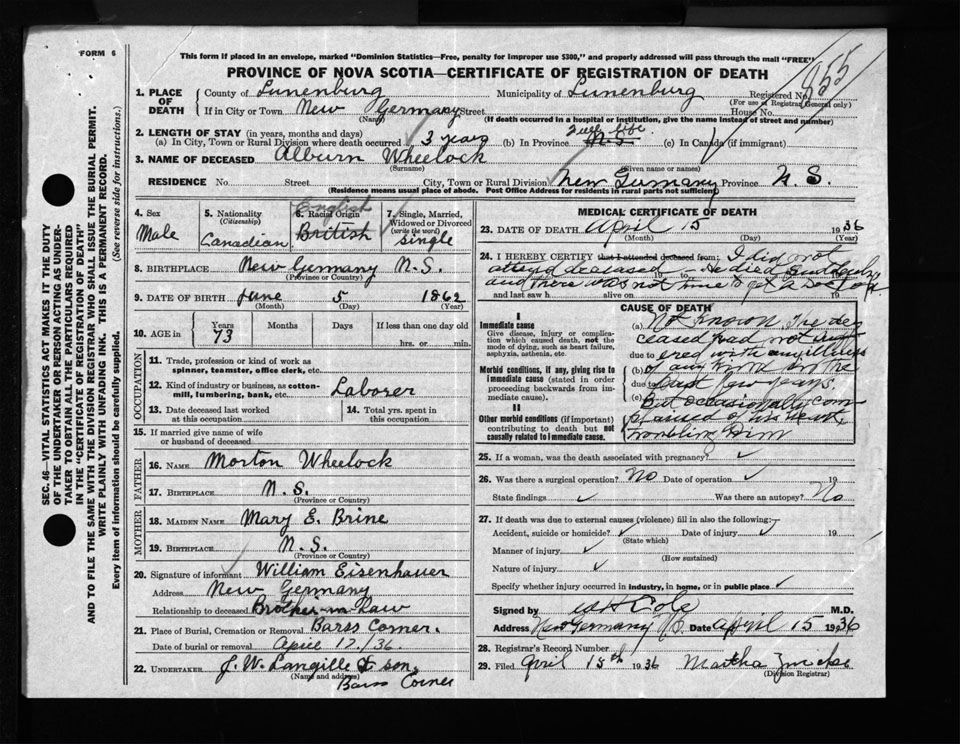 FORM 6
This form if placed in an envelope, marked "Dominion Statistics—Free, penalty for improper use $300," and properly addressed will pass through the mail "FREE"
PROVINCE OF NOVA SCOTIA—CERTIFICATE OF REGISTRATION OF DEATH
855
SEC. 46—VITAL STATISTICS ACT MAKES IT THE DUTY
OF THE UNDERTAKER OR PERSON ACTING AS UNDER-
TAKER TO OBTAIN ALL THE PARTICULARS REQUIRED
IN THE "CERTIFICATE OF REGISTRATION OF DEATH"
AND TO FILE THE SAME WITH THE DIVISION REGISTRAR WHO SHALL ISSUE THE BURIAL PERMIT.
WRITE PLAINLY WITH UNFADING INK. THIS IS A PERMANENT RECORD.
Every item of information should be carefully supplied. (See reverse side for instructions.)
1. PLACE OF DEATH
County of Lunenburg Municipality of Lunenburg Registered No.
(For use of Registrar General only)
If in City or Town New Germany Street House No.
(Name) (If death occurred in a hospital or institution, give the name instead of street and number)
2. LENGTH OF STAY (in years, months and days)
(a) In City, Town or Rural Division where death occurred 3 years (b) In Province N.S. (c) In Canada (if immigrant)
3. NAME OF DECEASED Alburn Wheelock
(Surname) (Given name or names)
RESIDENCE No. Street City, Town or Rural Division New Germany Province N. S.
(Residence means usual place of abode. Post Office Address for residents in rural parts not sufficient)
4. Sex
Male
5. Nationality
(Citizenship)
Canadian
6. Racial Origin
English
British
7. Single, Married, Widowed or Divorced
(write the word)
Single
8. BIRTHPLACE New Germany N.S.
(Province or Country)
9. DATE OF BIRTH June 5 1862
(Month) (Day) (Year)
10. AGE in Years Months Days If less than one day old
73 hrs. or min.
OCCUPATION
11. Trade, profession or kind of work as
spinner, teamster, office clerk, etc.
12. Kind of industry or business, as cotton-
mill, lumbering, bank, etc. Laborer
13. Date deceased last worked
at this occupation
14. Total yrs. spent in
this occupation
15. If married give name of wife
or husband of deceased
FATHER
16. NAME Morton Wheelock
17. BIRTHPLACE N.S.
(Province or Country)
MOTHER
18. MAIDEN NAME Mary E. Brine
19. BIRTHPLACE N.S.
(Province or Country)
20. Signature of informant William Eisenhauer
Address New Germany
Relationship to deceased Brother-in-Law
21. Place of Burial, Cremation or Removal Barss Corner.
Date of burial or removal April 17./36.
22. UNDERTAKER J. W. Langille & son,
(Name and address)
Barss Corner
MEDICAL CERTIFICATE OF DEATH
23. DATE OF DEATH April 15 1936
(Month) (Day) (Year)
24. I HEREBY CERTIFY that I attended deceased from: I did not
attend deceased 19 to He died suddenly
and there was not time to get a Doctor.
and last saw h alive on 19
CAUSE OF DEATH
I
Immediate cause
Give disease, injury or complica-
tion which caused death, not the
mode of dying, such as heart failure,
asphyxia, asthenia, etc.
Morbid conditions, if any, giving rise to
immediate cause (stated in order
proceeding backwards from im-
mediate cause).
II
Other morbid conditions (if important)
contributing to death but not
causally related to immediate cause.
(a) Not known. The de-
ceased had not suff-
due to ered with any illness
(b) of any kind in the
due to last few years.
(c) But occasionally com
plained of his heart
troubling him
25. If a woman, was the death associated with pregnancy?
26. Was there a surgical operation? No Date of operation 19
State findings Was there an autopsy? No
27. If death was due to external causes (violence) fill in also the following:
Accident, suicide or homicide? Date of injury 19
(State which)
Manner of injury
(How sustained)
Nature of injury
Specify whether injury occurred in industry, in home, or in public place
Signed by W H Cole M.D.
Address New Germany N.S. Date April 15 1936
28. Registrar's Record Number
29. Filed April 15th 1936 Martha
(Division Registrar)